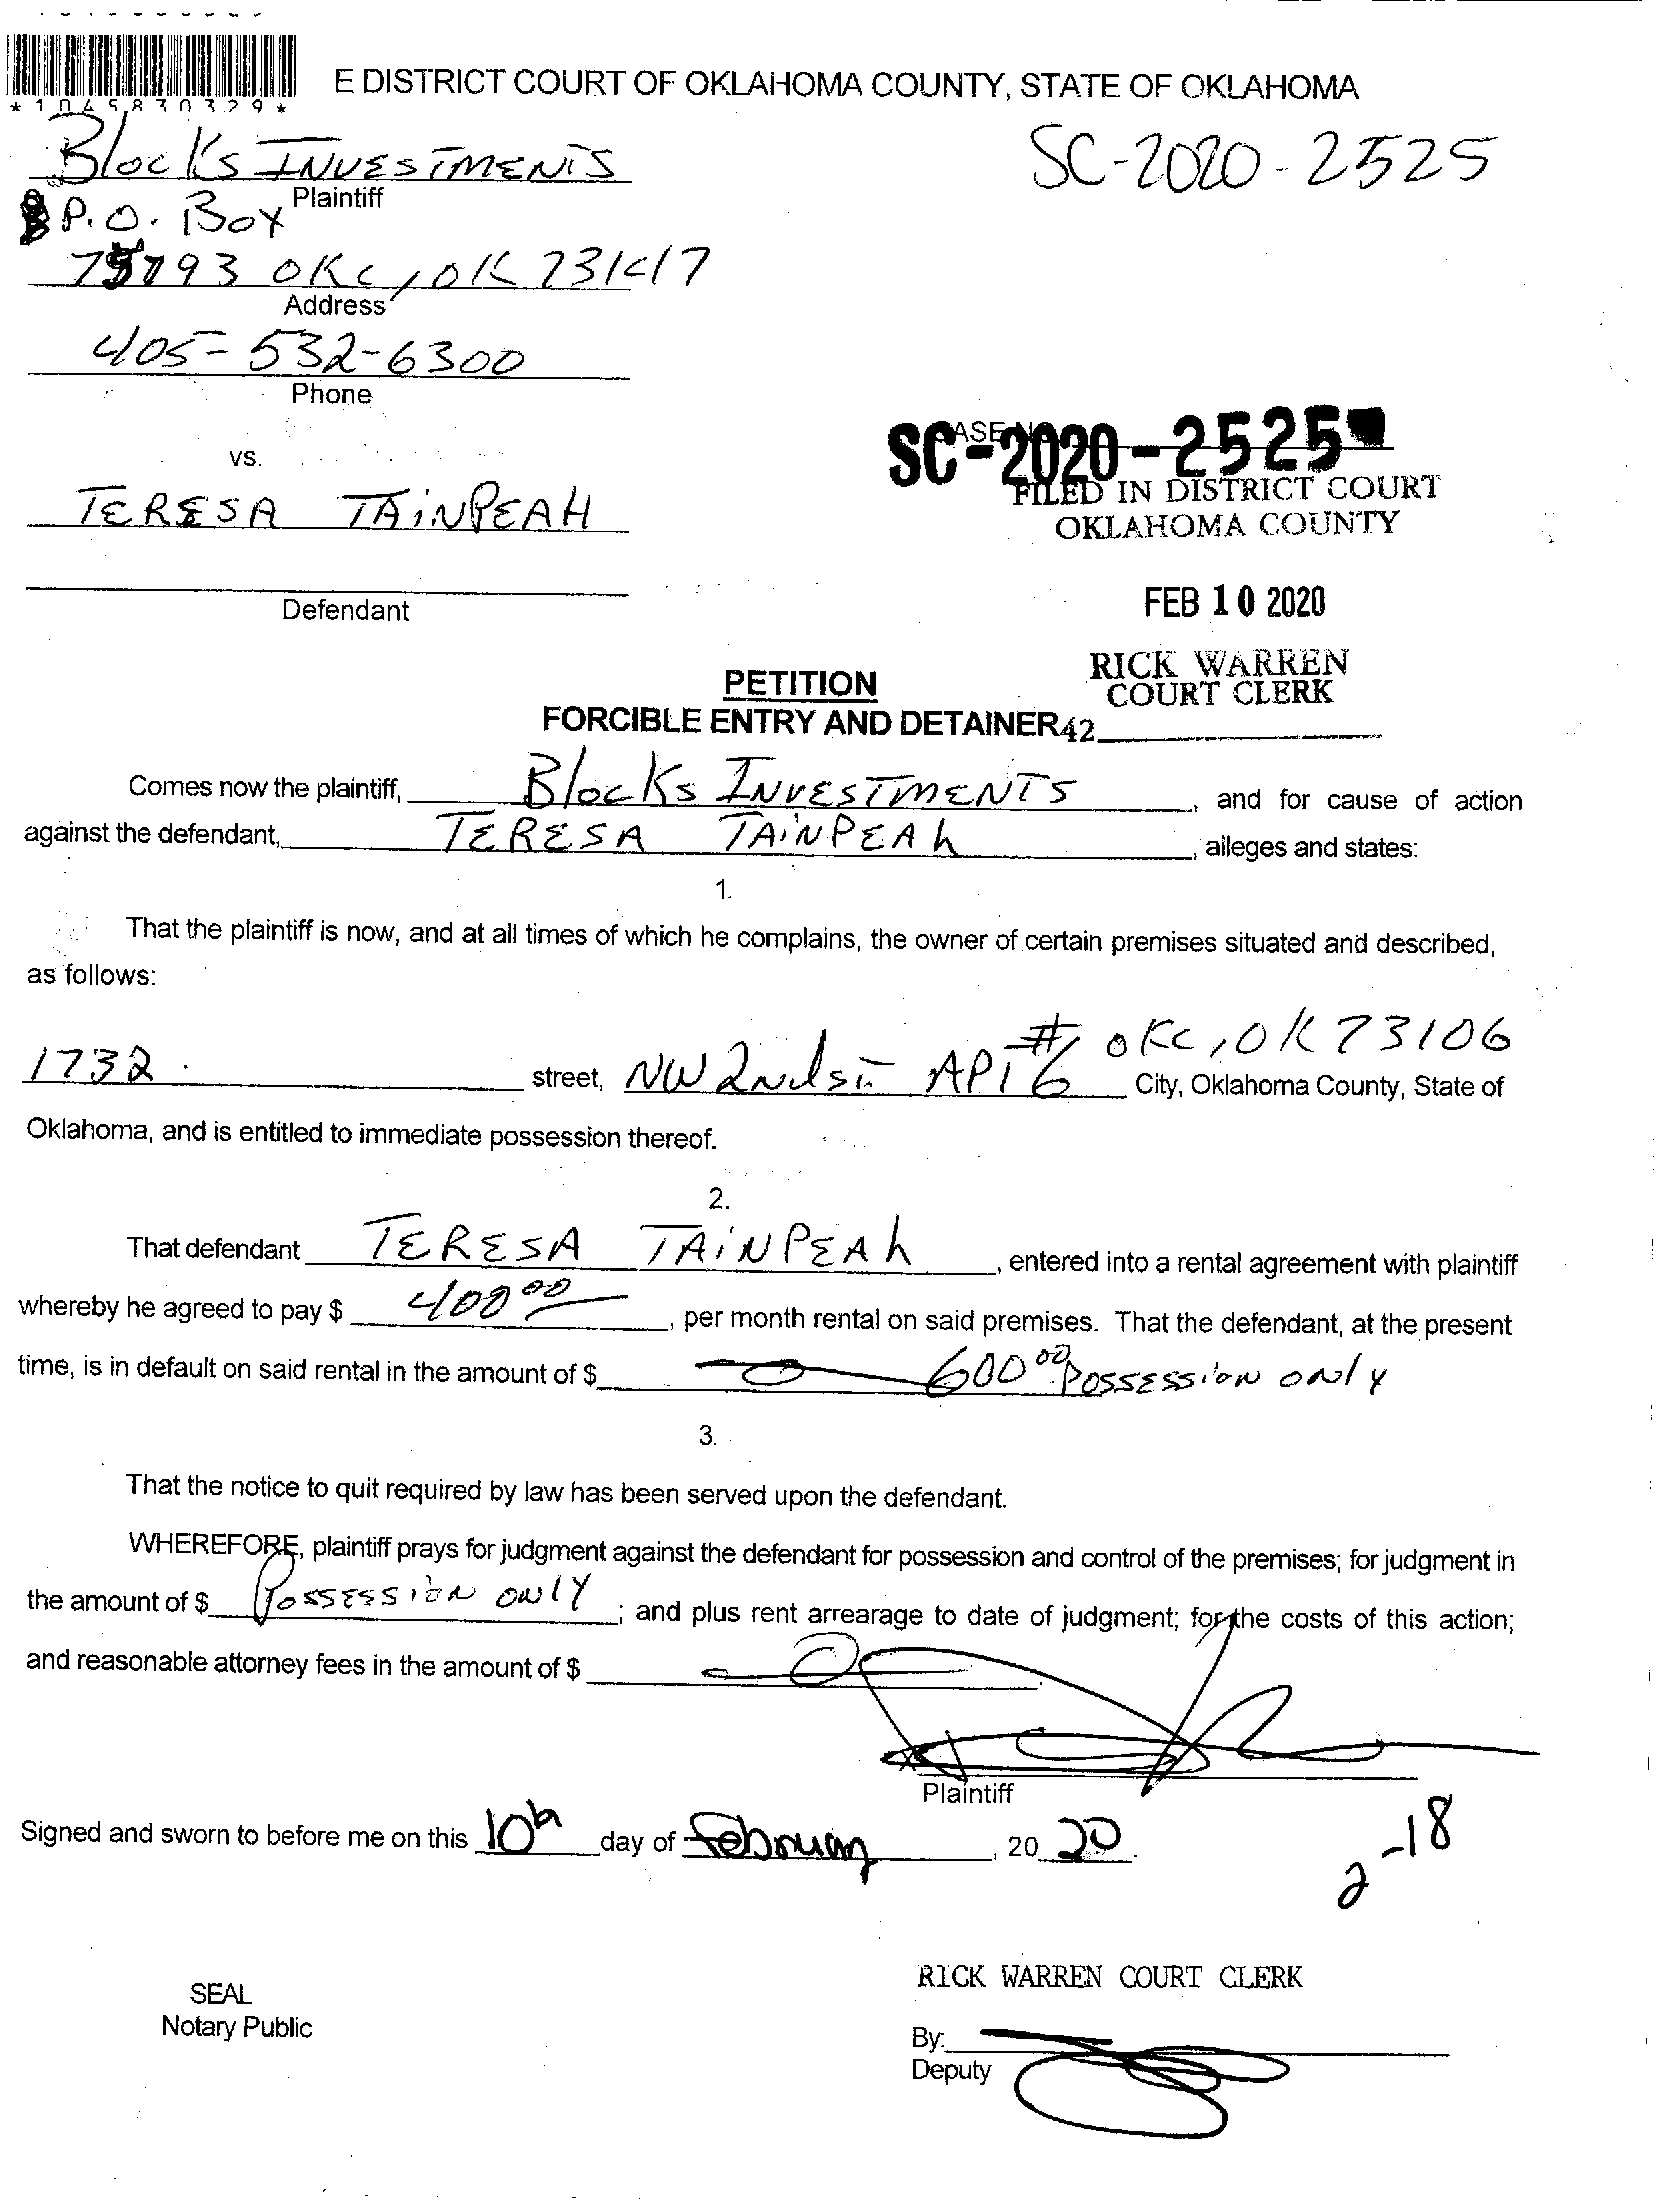 *1045830329*
E DISTRICT COURT OF OKLAHOMA COUNTY, STATE OF OKLAHOMA
Blocks INVESTMENTS
SC-2020-2525
Plaintiff
P.O. Box
OKC, OK 73147
Address
405-532-6300
Phone
vs.
SC-2020-2525
FILED IN DISTRICT COURT
OKLAHOMA COUNTY
TERESA TAINPEAH
Defendant
FEB 10 2020
RICK WARREN
COURT CLERK
PETITION
FORCIBLE ENTRY AND DETAINER 42
Comes now the plaintiff, Blocks INVESTMENTS, and for cause of action
against the defendant, TERESA TAINPEAh, alleges and states:
1.
That the plaintiff is now, and at all times of which he complains, the owner of certain premises situated and described,
as follows:
1732 street, NW 2nd st APT #6 OKC, OK 73106 City, Oklahoma County, State of
Oklahoma, and is entitled to immediate possession thereof.
2.
That defendant TERESA TAINPEAh, entered into a rental agreement with plaintiff
whereby he agreed to pay $ 400 00, per month rental on said premises. That the defendant, at the present
time, is in default on said rental in the amount of $ 600 00 POSSESSION ONLY
3.
That the notice to quit required by law has been served upon the defendant.
WHEREFORE, plaintiff prays for judgment against the defendant for possession and control of the premises; for judgment in
the amount of $ POSSESSION ONLY; and plus rent arrearage to date of judgment; for the costs of this action;
and reasonable attorney fees in the amount of $
Plaintiff
Signed and sworn to before me on this 10th day of February, 20 20.
2-18
RICK WARREN COURT CLERK
SEAL
Notary Public
By:
Deputy